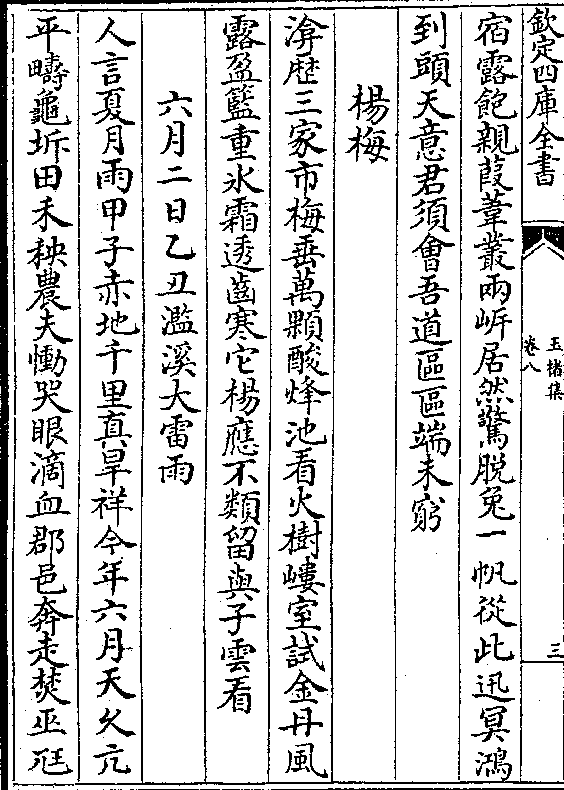 欽定四庫全書
玉楮集
卷八
三
宿露飽親葭葦叢兩㟁居然驚脱兔一帆從此迅冥鴻
到頭天意君須會吾道區區端未窮
楊梅
渰歴三家市梅垂萬顆酸烽池看火樹嶁室試金丹風
露盈籃重氷霜透齒寒它楊應不類留與子雲看
六月二日乙丑濫溪大雷雨
人言夏月雨甲子赤地千里真旱祥今年六月天久亢
平疇龜坼田禾秧農夫慟哭眼滴血郡邑奔走焚巫尫